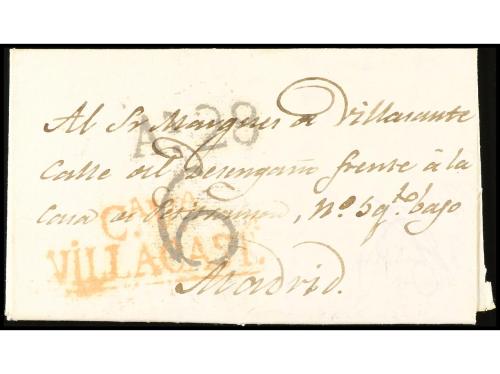 Al Sr. Marques de Villasante
A. 28
Calle del Desengaño frente à la
6
Casa de, Nº. 5 qto. bajo
C.
VILLACAST.
Madrid.